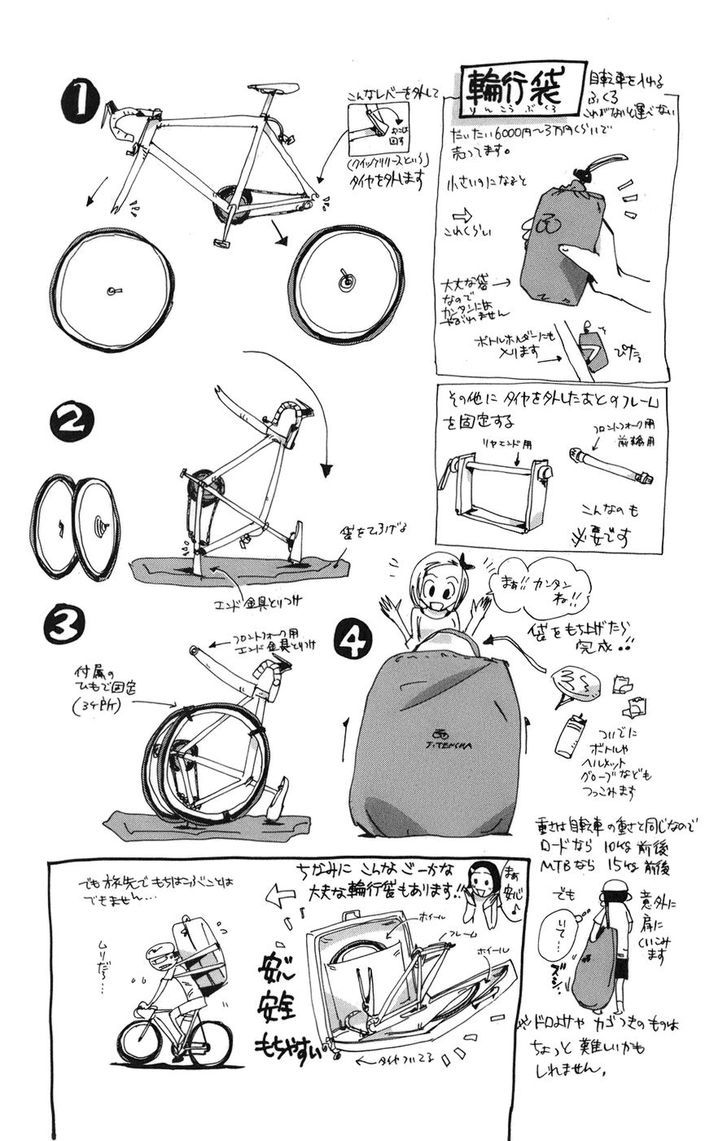 輪行袋
りんこうぶくろ
自転車を入れる
ふくろ
これがないと運べない
だいたい6000円〜3万円くらいで
売ってます。
小さいのになると
⇨
これくらい
大丈夫な袋
なので
カンタンには
やぶれません
ボトルホルダーにも
入ります
ぴたっ
1
こんなレバーを外して
(クイックリリースという)
タイヤを外します
その他に タイヤを外したあとのフレーム
を固定する
リヤエンド用
フロントフォーク用
前輪用
こんなのも
必要です
2
袋をひろげる
エンド金具とりつけ
3
フロントフォーク用
エンド金具とりつけ
付属の
ひもで固定
(3ヶ所)
4
まぁ!!カンタン
ね!!
袋をもち上げたら
完成!!
JiTENSHA
ついでに
ボトルや
ヘルメット
グローブなども
つっこみます
重さは自転車の重さと同じなので
ロードなら 10kg前後
MTBなら 15kg前後
でも
いて…
ズシ
意外に
肩に
くいこみ
ます
ドロよけや カゴつきのものは
ちょっと 難しいかも
しれません。
ちなみに こんな ごーかな
大丈夫な輪行袋もあります!!
まぁ
安心♪
でも 旅先で もちはこぶことは
できません…
ムリだろ…
安心
安全
もちやすい
ホイール
フレーム
ホイール
←タイヤついてる